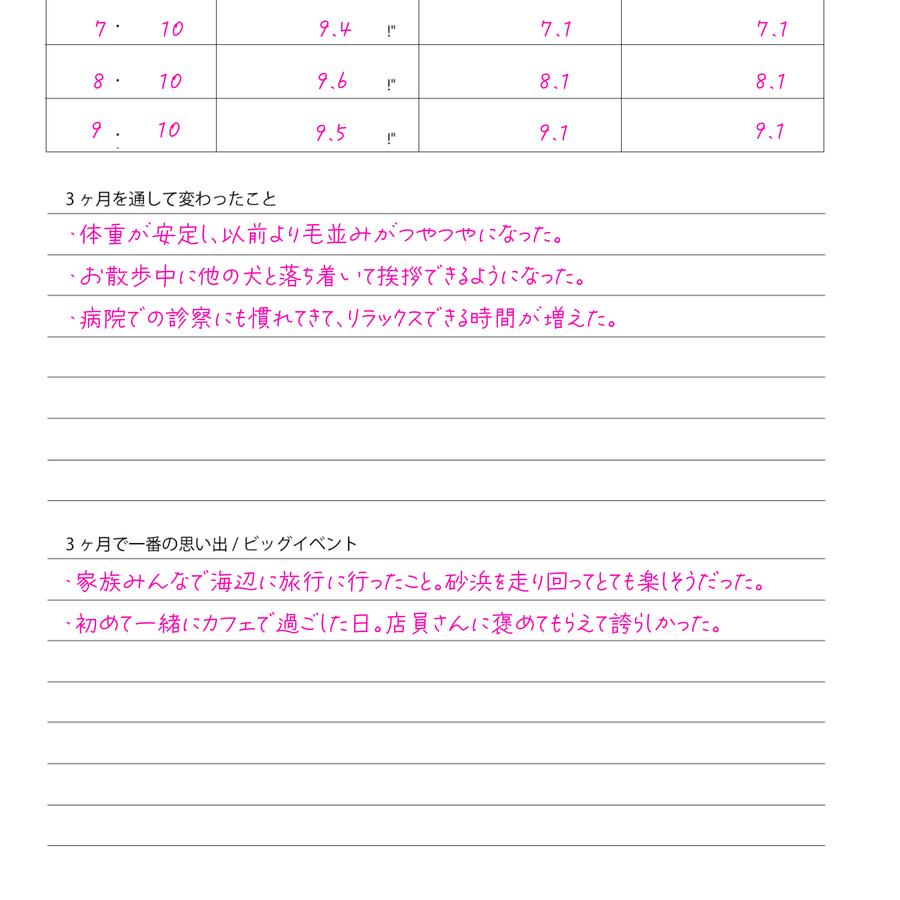 7 ・ 10 9.4 !" 7.1 7.1
8 ・ 10 9.6 !" 8.1 8.1
9 ・ 10 9.5 !" 9.1 9.1
3ヶ月を通して変わったこと
・体重が安定し、以前より毛並みがつやつやになった。
・お散歩中に他の犬と落ち着いて挨拶できるようになった。
・病院での診察にも慣れてきて、リラックスできる時間が増えた。
3ヶ月で一番の思い出/ビッグイベント
・家族みんなで海辺に旅行に行ったこと。砂浜を走り回ってとても楽しそうだった。
・初めて一緒にカフェで過ごした日。店員さんに褒めてもらえて誇らしかった。